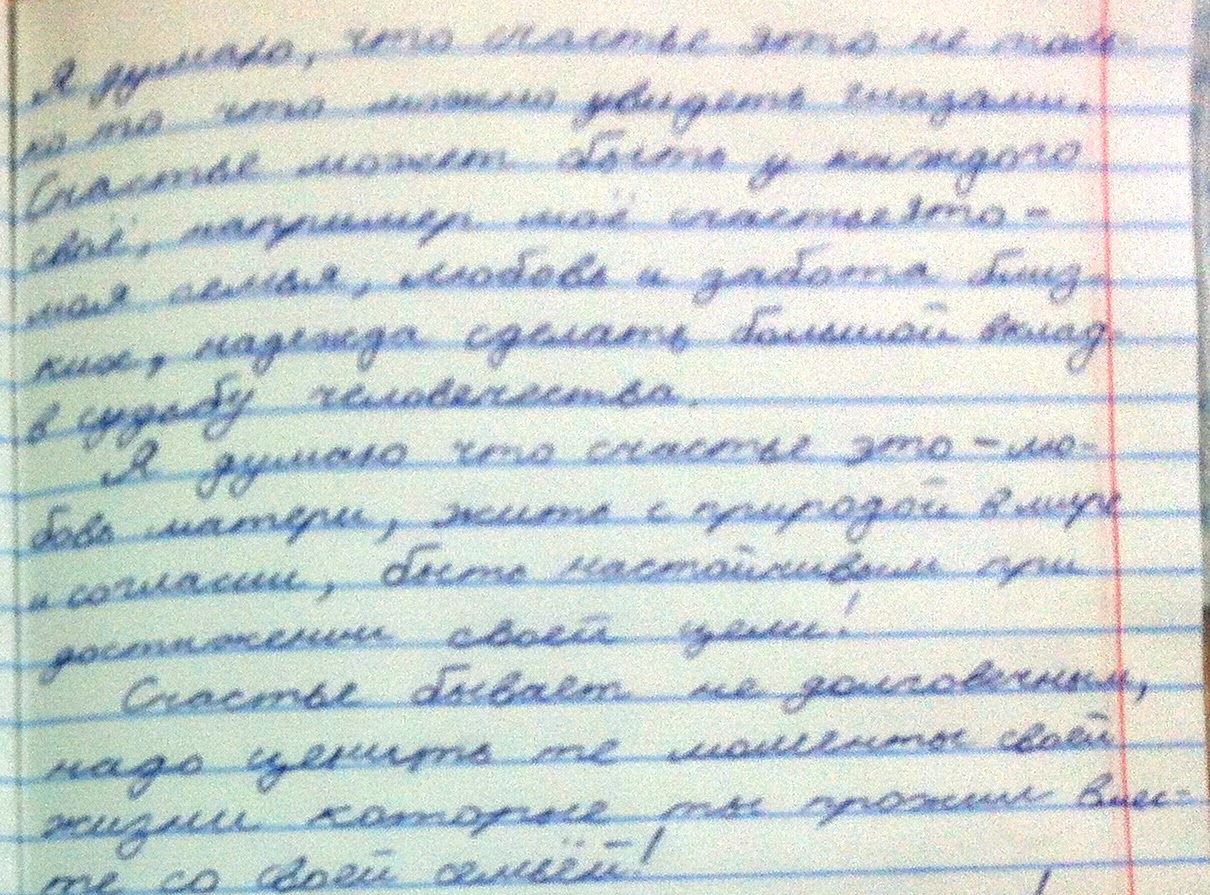 Я думаю, что счастье это не толь-
ко то что можно увидеть глазами.
Счастье может быть у каждого
своё, например моё счастье это -
моя семья, любовь и забота близ-
ких, надежда сделать большой вклад
в судьбу человечества.
Я думаю что счастье это - лю-
бовь матери, жить с природой в мире
и согласии, быть настойчивым при
достижении своей цели!
Счастье бывает не долговечным,
надо ценить те моменты своей
жизни которые ты прожил вмес-
те со своей семьёй!